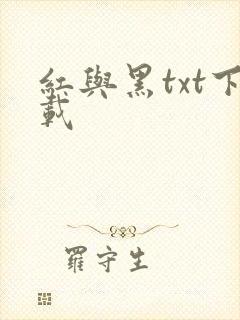 紅與黑txt下
載
羅守生